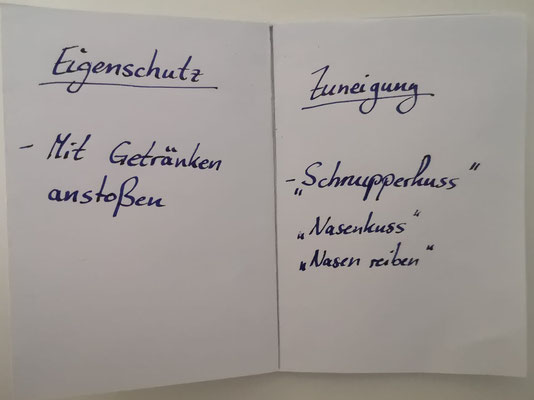 Eigenschutz
- Mit Getränken
anstoßen
Zuneigung
- „Schnupperkuss"
„Nasenkuss"
„Nasen reiben"